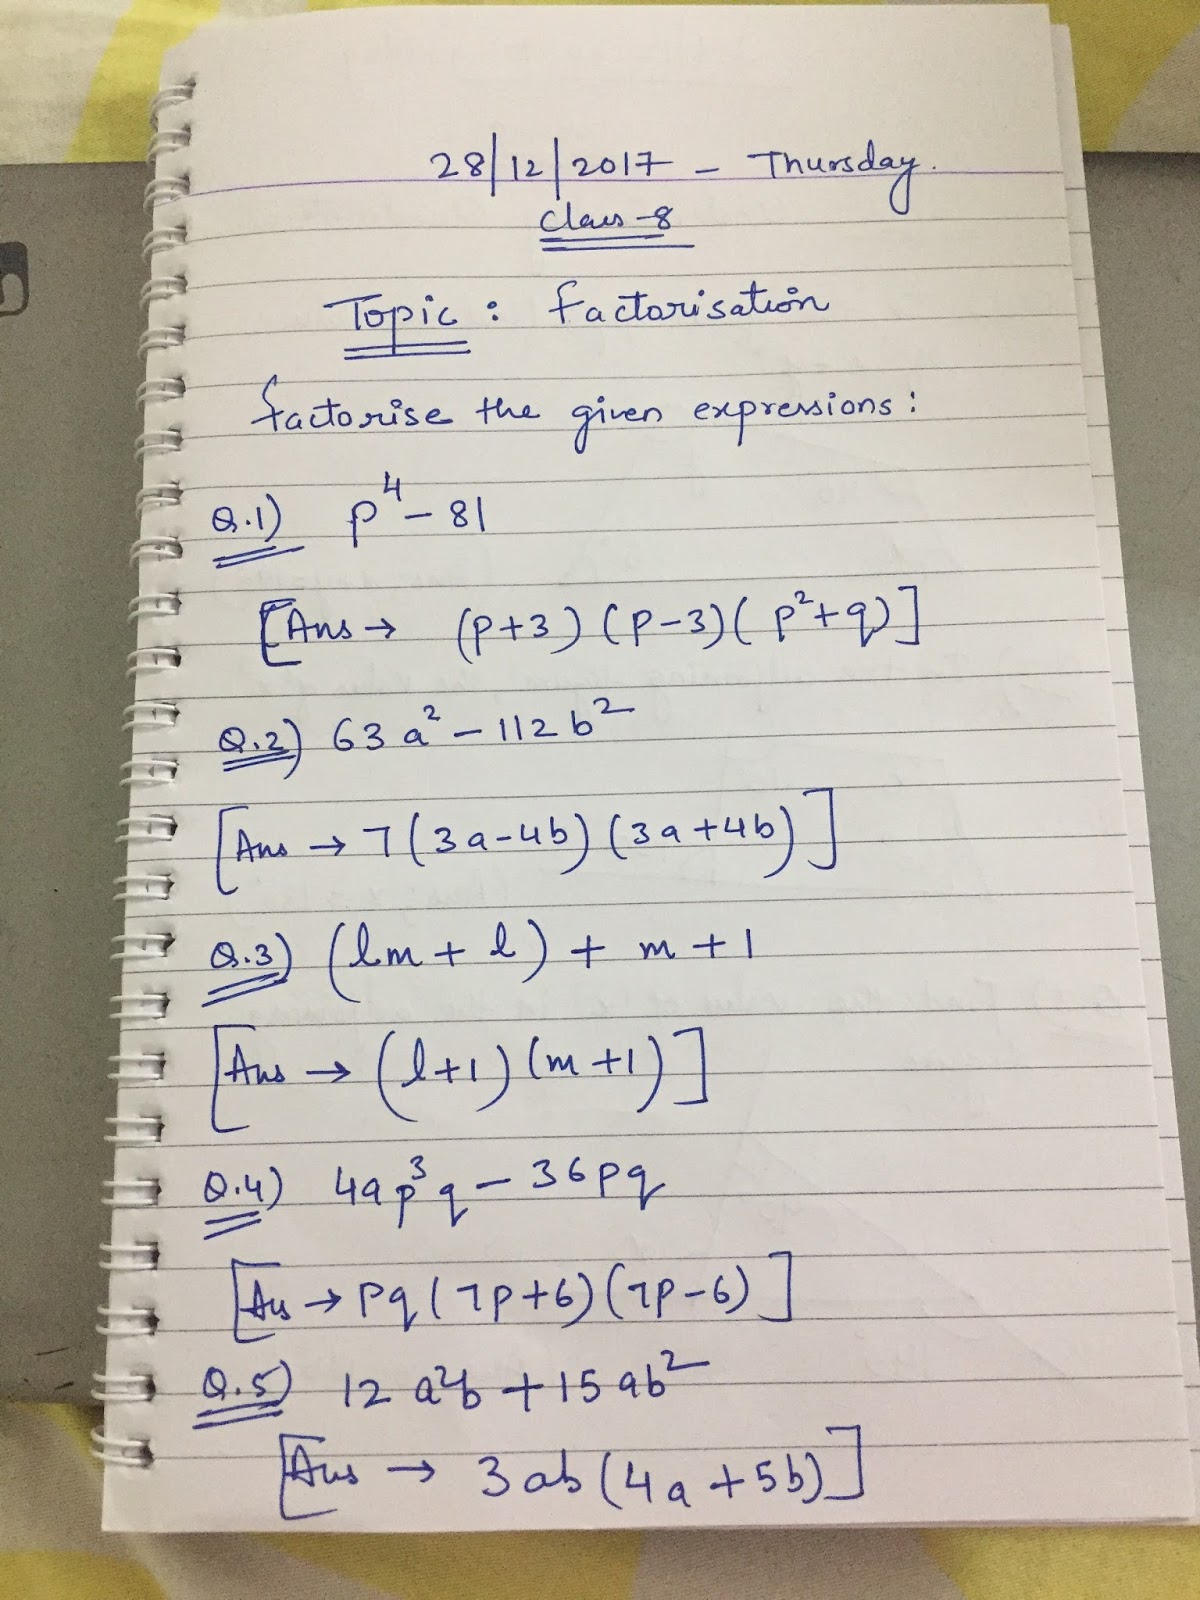 28/12/2017 - Thursday.
Class-8
Topic: Factorisation
Factorise the given expressions:
Q.1) p⁴ - 81
[Ans → (p+3) (p-3) (p²+9)]
Q.2) 63a² - 112b²
[Ans → 7(3a-4b) (3a+4b)]
Q.3) (lm + l) + m + 1
[Ans → (l+1) (m+1)]
Q.4) 49p³q - 36pq
[Ans → pq(7p+6) (7p-6)]
Q.5) 12a²b + 15ab²
[Ans → 3ab(4a+5b)]